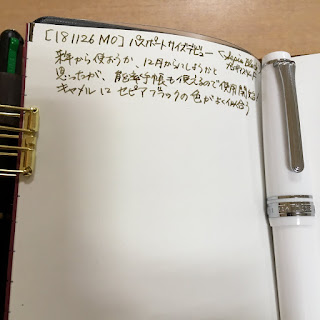 [181126 MO] パスポートサイズデビュー
来年から使おうか、12月からにしようかと
思ったが、能率手帳も使えるので使用開始
キャメルにセピアブラックの色がよく似合う